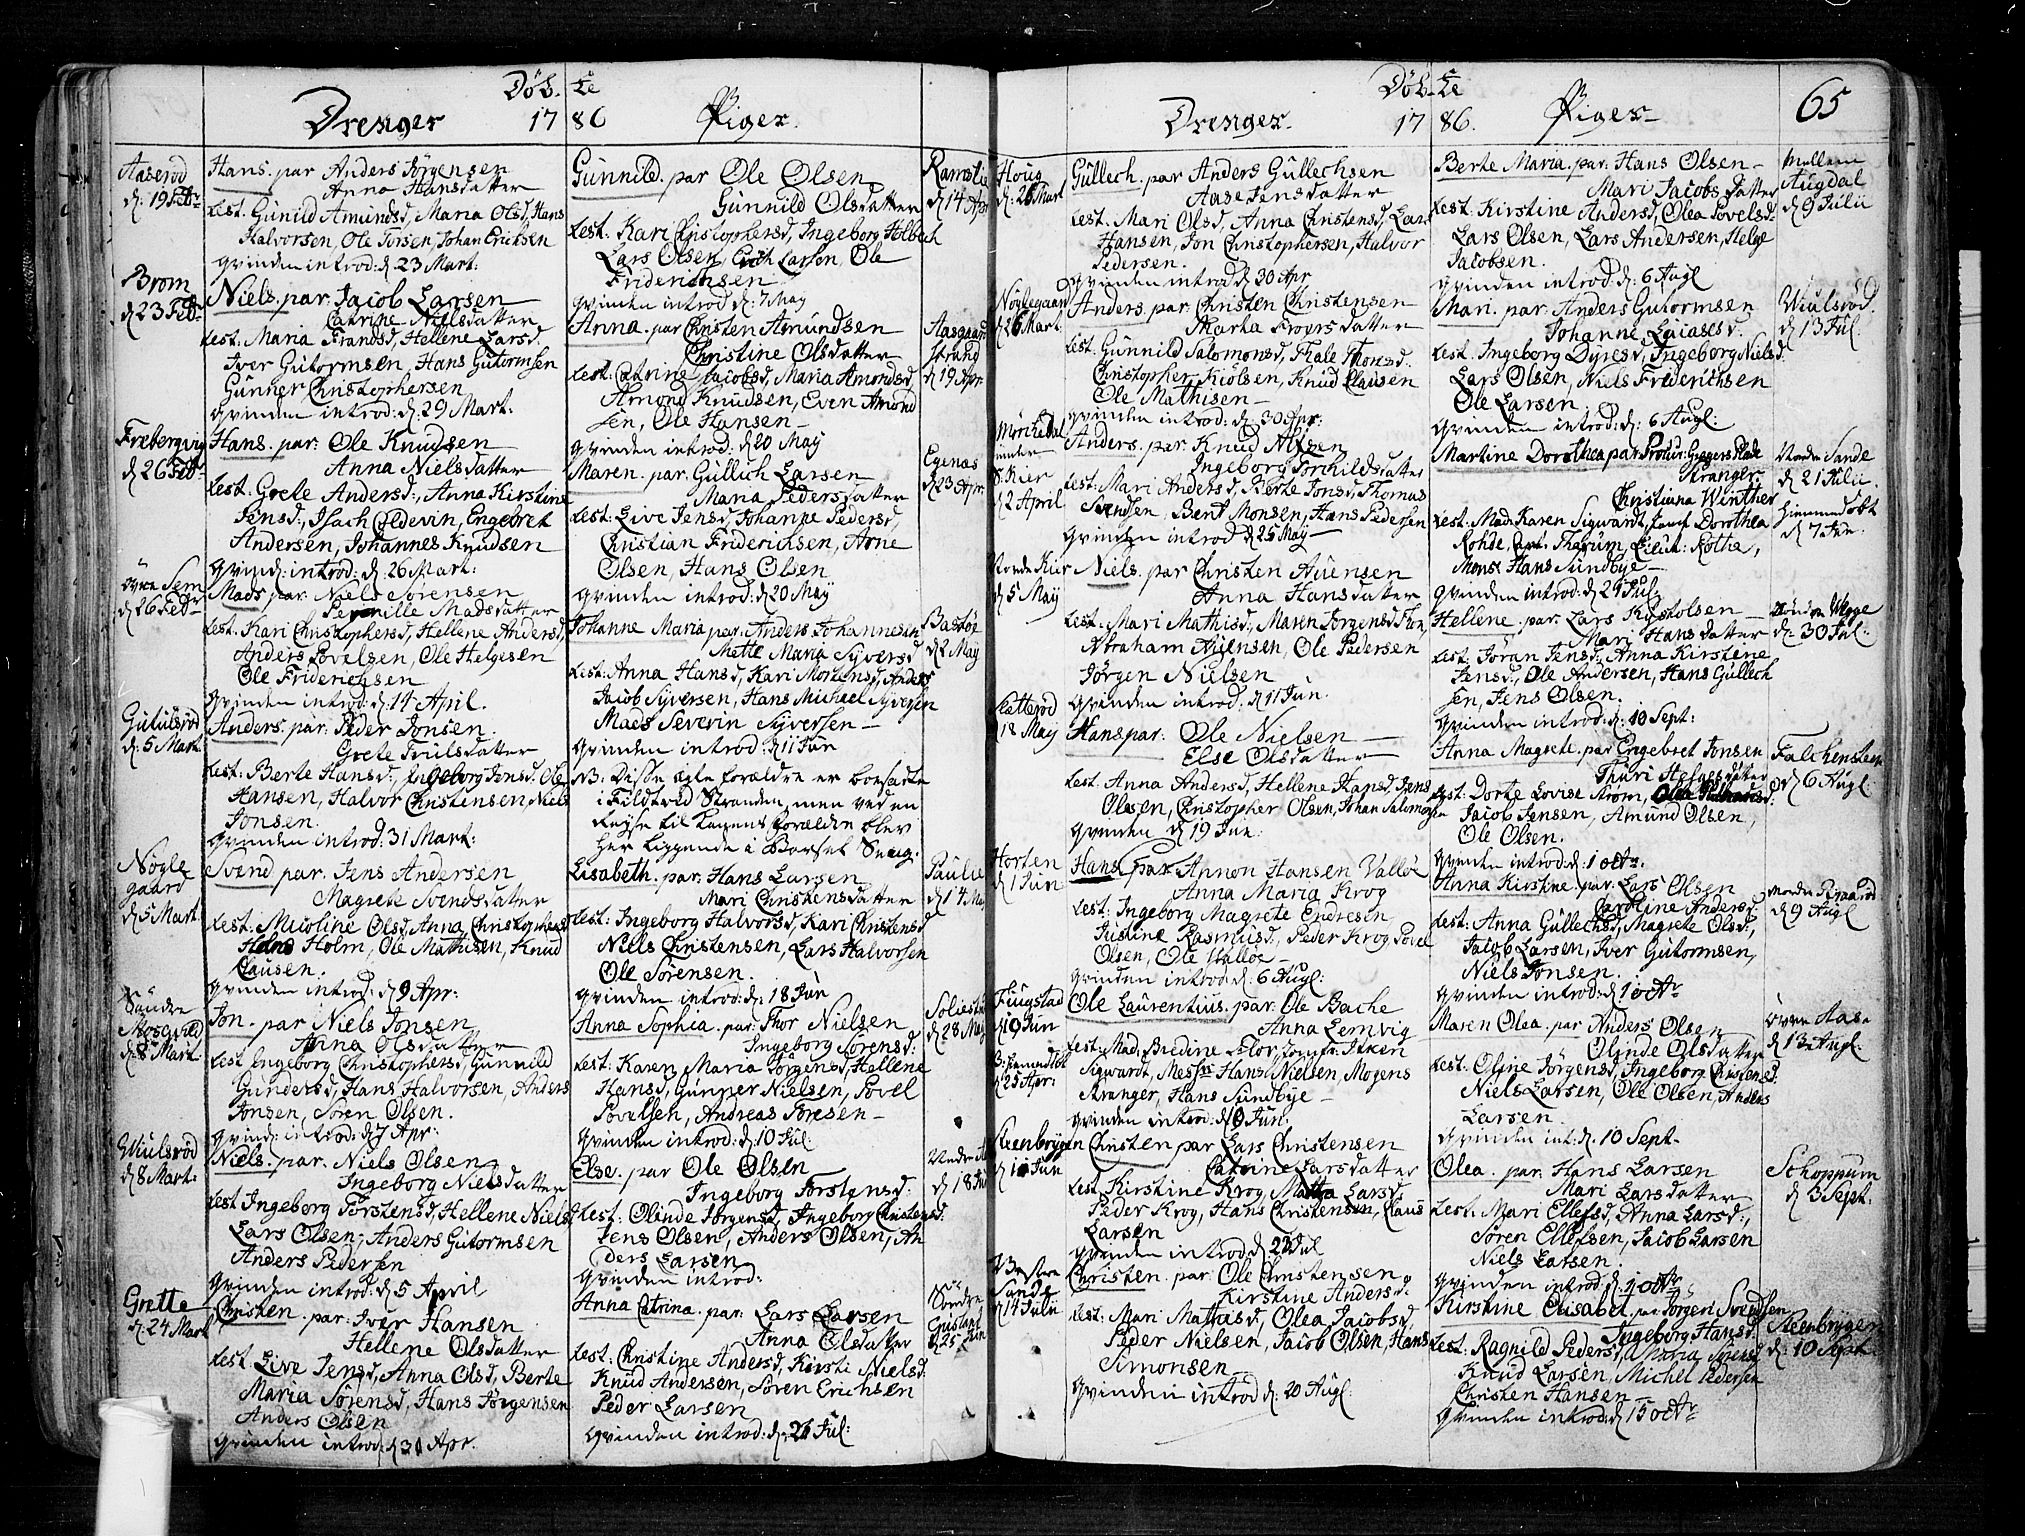 Døbte
Drenger 17
Aaserød
d: 19 Febr
Hans. par Anders Jørgensen
Anna Hansdatter
Test. Gunild Amundsd, Maria Olsd, Hans
Halvorsen, Ole Torsen, Johan Ericksen
Qvinden introd: d 23 Mart:
Brom
d 23 Febr
Niels. par. Jacob Larsen
Catrine Nielsdatter
Test. Maria Frandsd, Hellene Larsd.
Iver Gutormsen, Hans Gutormsen
Gunner Christophersen
Qvinden introd: d. 29 Mart:
Frebergvig
d 26 Febr
Hans. par: Ole Knudsen
Anna Nielsdatter
Test. Grete Andersd., Anna Kirstine
Jensd:, Isach Coldevin, Engebret
Andersen, Johannes Knudsen
Qvind: introd: d: 26 Mart:
øvre Sem
d 26 Febr
Mads par. Niels Sørensen
Pernille Madsdatter
Test. Kari Christophersd, Hellene Andersd,
Anders Povelsen, Ole Helgesen
Ole Friderichsen
Qvinden introd: d. 14 April.
d. 5 Mart.
Anders. par: Peder Jonsen.
Grete Truls datter
Test: Berte Hansd., Ingeborg Jensd. Ole
Hansen, Halvor Christensen, Niels
Jonsen.
Qvinden introd: 31 Mart:
Nøgle
gaard
d 5 Mart.
Svend par. Jens Andersen
Magrete Svendsdatter
Test. Nicoline Olsd, Anna Christophersd
Hans Holm, Ole Mathisen, Knud
Clausen.
Qvinden introd: d 9 Apr:
Søndre
d 8 Mart
Jon. par Niels Jonsen
Anna Olsdatter
Test Ingeborg Christophersd, Gunnild
Gundersd, Hans Halvorsen, Anders
Jonsen, Søren Olsen.
Qvind: introd: d 7 Apr:
Viulsrød
d 8 Mart.
Niels. par. Niels Olsen
Ingeborg Nielsdatter
Test Ingeborg Torstensd, Hellene Nielsd
Lars Olsen, Anders Gutormsen
Anders Pedersen
Qvinden introd: d 5 April
Grette
d: 24 Mart
Christen. par: Iver Hansen
Hellene Olsdatter
Test. Live Jensd, Anna Olsd, Berte
Maria Sørensd, Hans Jørgensen
Anders Olsen
Qvinden introd: d 30 Apr.
86 Piger.
Gunnild. par Ole Olsen
Gunnild Olsdatter
Ramslie
d 14 Apr
Test. Kari Christophersd, Ingeborg Holbech
Lars Olsen, Erich Larsen, Ole
Friderichsen
Qvinden introd d: 7 May
Anna. par Christen Amundsen
Christine Olsdatter
Aasgaard
strand
d 19 Apr
Test: Catrine Jacobsd, Maria Amondsd,
Amond Knudsen, Even Amond
sen, Ole Hansen
Qvinden introd: d 20 May
Maren. par. Gullich Larsen
Maria Pedersdatter
Egenæs
d 23 Apr.
Test: Live Jensd, Johanne Pedersd,
Christian Friderichsen, Arne
Olsen, Hans Olsen
Qvinden introd: d 20 May
Johanne Maria par: Anders Johannesen
Mette Maria Syversd
Bastøe
d 2 May
Test: Anna Hansd, Kari Mortensd, Anders
Jacob Syversen, Hans Michael Syversen
Mads Severin Syversen
Qvinden introd: d 11 Jun
NB: Disse ægte forældre er boesatte
i Fildtved Stranden, men ved en
Reyse til Konens forældre blev
her liggende i Barsel Seng.
Lisabeth. par: Hans Larsen
Mari Christensdatter
Paulie
d 14 May
Test: Ingeborg Halvorsd, Kari Christensd
Niels Christensen, Lars Halvorsen
Ole Sørensen.
Qvinden introd: d: 18 Jun
Anna Sophia. par: Thor Nielsen
Ingeborg Sørensd:
d 28 May
Test: Karen Maria Jørgensd, Hellene
Hansd, Gunner Nielsen, Povel
Povelsen, Andreas Toresen
Qvinden introd: d 10 Jul.
Else. par Ole Olsen
Ingeborg Torstensd:
d 18 Jun
Test: Olinde Jørgensd, Ingeborg Christensd.
Jens Olsen, Anders Olsen, An
ders Larsen
Qvinden introd:
Anna Catrina. par: Lars Larsen
Anna Olsdatter
Søndre
d 25 Jun
Test: Christine Andersd, Kirsti Nielsd:
Knud Andersen, Søren Erichsen
Peder Larsen
Qvinden introd: d. 26 Jul:
Døbte
Drenger. 17
Houg
d: 26 Mart
Gullech. par Anders Gullechsen
Aase Jensdatter
Test. Mari Olsd, Anna Christensd, Lars
Hansen, Jon Christophersen, Halvor
Pedersen.
Qvinden introd d 30 Apr
Nøglegaard
d 26 Mart.
Anders. par Christen Christensen
Marta Frorsdatter
Test. Gunnild Salomonsd, Thale Thorsd.
Christopher Kiølsen, Knud Clausen
Ole Mathisen
Qvinden introd: d: 30 Apr:
Mørchedal
under
S: Kier
d 2 April
Anders. par. Knud Alfsen
Ingeborg Torchildsdatter
Test. Mari Andersd, Berte Jonsd, Thomas
Svendsen, Bent Monsen, Hans Pedersen
Qvinden introd d 25 May
Nordre Kier
d 5 May
Niels. par Christen Auensen
Anna Hansdatter
Test. Mari Mathisd, Maren Jørgensd
Abraham Auensen, Ole Pedersen
Jørgen Nielsen
Qvinden introd. d 11 Jun.
Slatterød
18 May
Hans par: Ole Nielsen
Else Olsdatter
Test. Anna Andersd, Hellene Hansd, Jens
Olsen, Christopher Olsen, Johan Salomonsen
Qvinden d 19 Jun:
Horten
d 1 Jun
Hans par. Annon Hansen Valløe
Anna Maria Krog
Test: Ingeborg Magrete Endresen
Justine Rasmusd, Peder Krog Povel
Olsen, Ole Valløe
Qvinden introd: d: 6 Augl:
Fuugstad
d 9 Jun
hiemmedøbt
d 25 Apr:
Ole Laurentius. par: Ole Bache
Anna Lemvig
Test. Mad. Bredine Flor, Jomfr: Itken
Sigwardt, Messrs Hans Nielsen, Mogens
Stranger, Hans Sundbye
Qvinden introd: d 9 Jun:
Steenbrygen
d 11 Jun
Christen par Lars Christensen
Catrine Larsdatter
Test Kirstine Krog, Martha Larsd
Peder Krog, Hans Christensen, Claus
Larsen
Qvinden introd d 22 Jul
Vestre
Sande
d 14 Julii
Christen. par. Ole Christensen
Kirstine Andersd:
Test: Mari Mathisd, Olea Jacobsd,
Peder Nielsen, Jacob Olsen, Hans
Simonsen
Qvinden introd d: 20 Augl:
86. Piger
65
Berte Maria. par: Hans Olsen
Mari Jacobsdatter
Mellem
Augdal
d 9 Julii
Test. Kirstine Andersd, Olea Povelsd:
Lars Olsen, Lars Andersen, Helge
Jacobsen.
Qvinden introd: d: 6 Augl
Mari. par. Anders Gutormsen
Johanne Lucasesd.
Viulsrød.
d 13 Jul.
Test. Ingeborg Dyresd, Ingeborg Nielsd.
Lars Olsen, Niels Frederichsen
Ole Larsen.
Qvinden introd: d: 6 Augl:
Martine Dorothea par: Procur: Gregers Flade
Stranger.
Christiana Winther
Nordre Sande
d 21 Julii.
hiemmedøbt
d 7 Jun.
Test. Mad. Karen Sigwardt, Jomf. Dorothea
Rohde, Capt. Tharum, Lieut: Rothe,
Monsr Hans Sundbye
Qvinden introd: d: 29 Jul
Hellene. par. Lars
Mari Hansdatter
d. 30 Jul:
Test. Jøran Jensd. Anna Kirstine
Jensd., Ole Andersen, Hans Gullech
sen, Jens Olsen.
Qvinden introd: d: 10 Sept:
Anna Magrete. par Engebret Jonsen
Thuri Helgesdatter
Falchensteen
d 6 Augl.
Test: Dorte Lovise Strøm,
Jacob Jensen, Amund Olsen,
Ole Olsen.
Qvinden introd: d: 1 octr.
Anna Kirstine. par. Lars Olsen
Caroline Andersd
d 9 Augl
Test. Anna Gullechsd, Magrete Olsd.,
Jacob Larsen, Iver Gutormsen,
Niels Jonsen.
Qvinden introd: d 1 octr
Maren Olea. par Anders Olsen
Olinde Olsdatter
øvre Aas
d 13 Augl.
Test. Oline Jørgensd, Ingeborg Christensd.
Niels Larsen, Ole Olsen, Anders
Larsen.
Qvinden int: d. 10 Sept.
Olea. par. Hans Larsen
Mari Larsdatter
Schoppum
d 3 Sept.
Test. Mari Ellefsd, Anna Larsd.,
Søren Ellefsen, Jacob Larsen
Niels Larsen.
Qvinden introd: d. 1 octr
Kirstine Elisabet. par Jørgen Svendsen
Ingeborg Hansd.
Steenbrygen
d. 10 Sept
Test. Ragnild Pedersd, Maria Sørensd
Knud Larsen, Michel Pedersen
Christen Hansen
Qvinden introd: d 15 octr